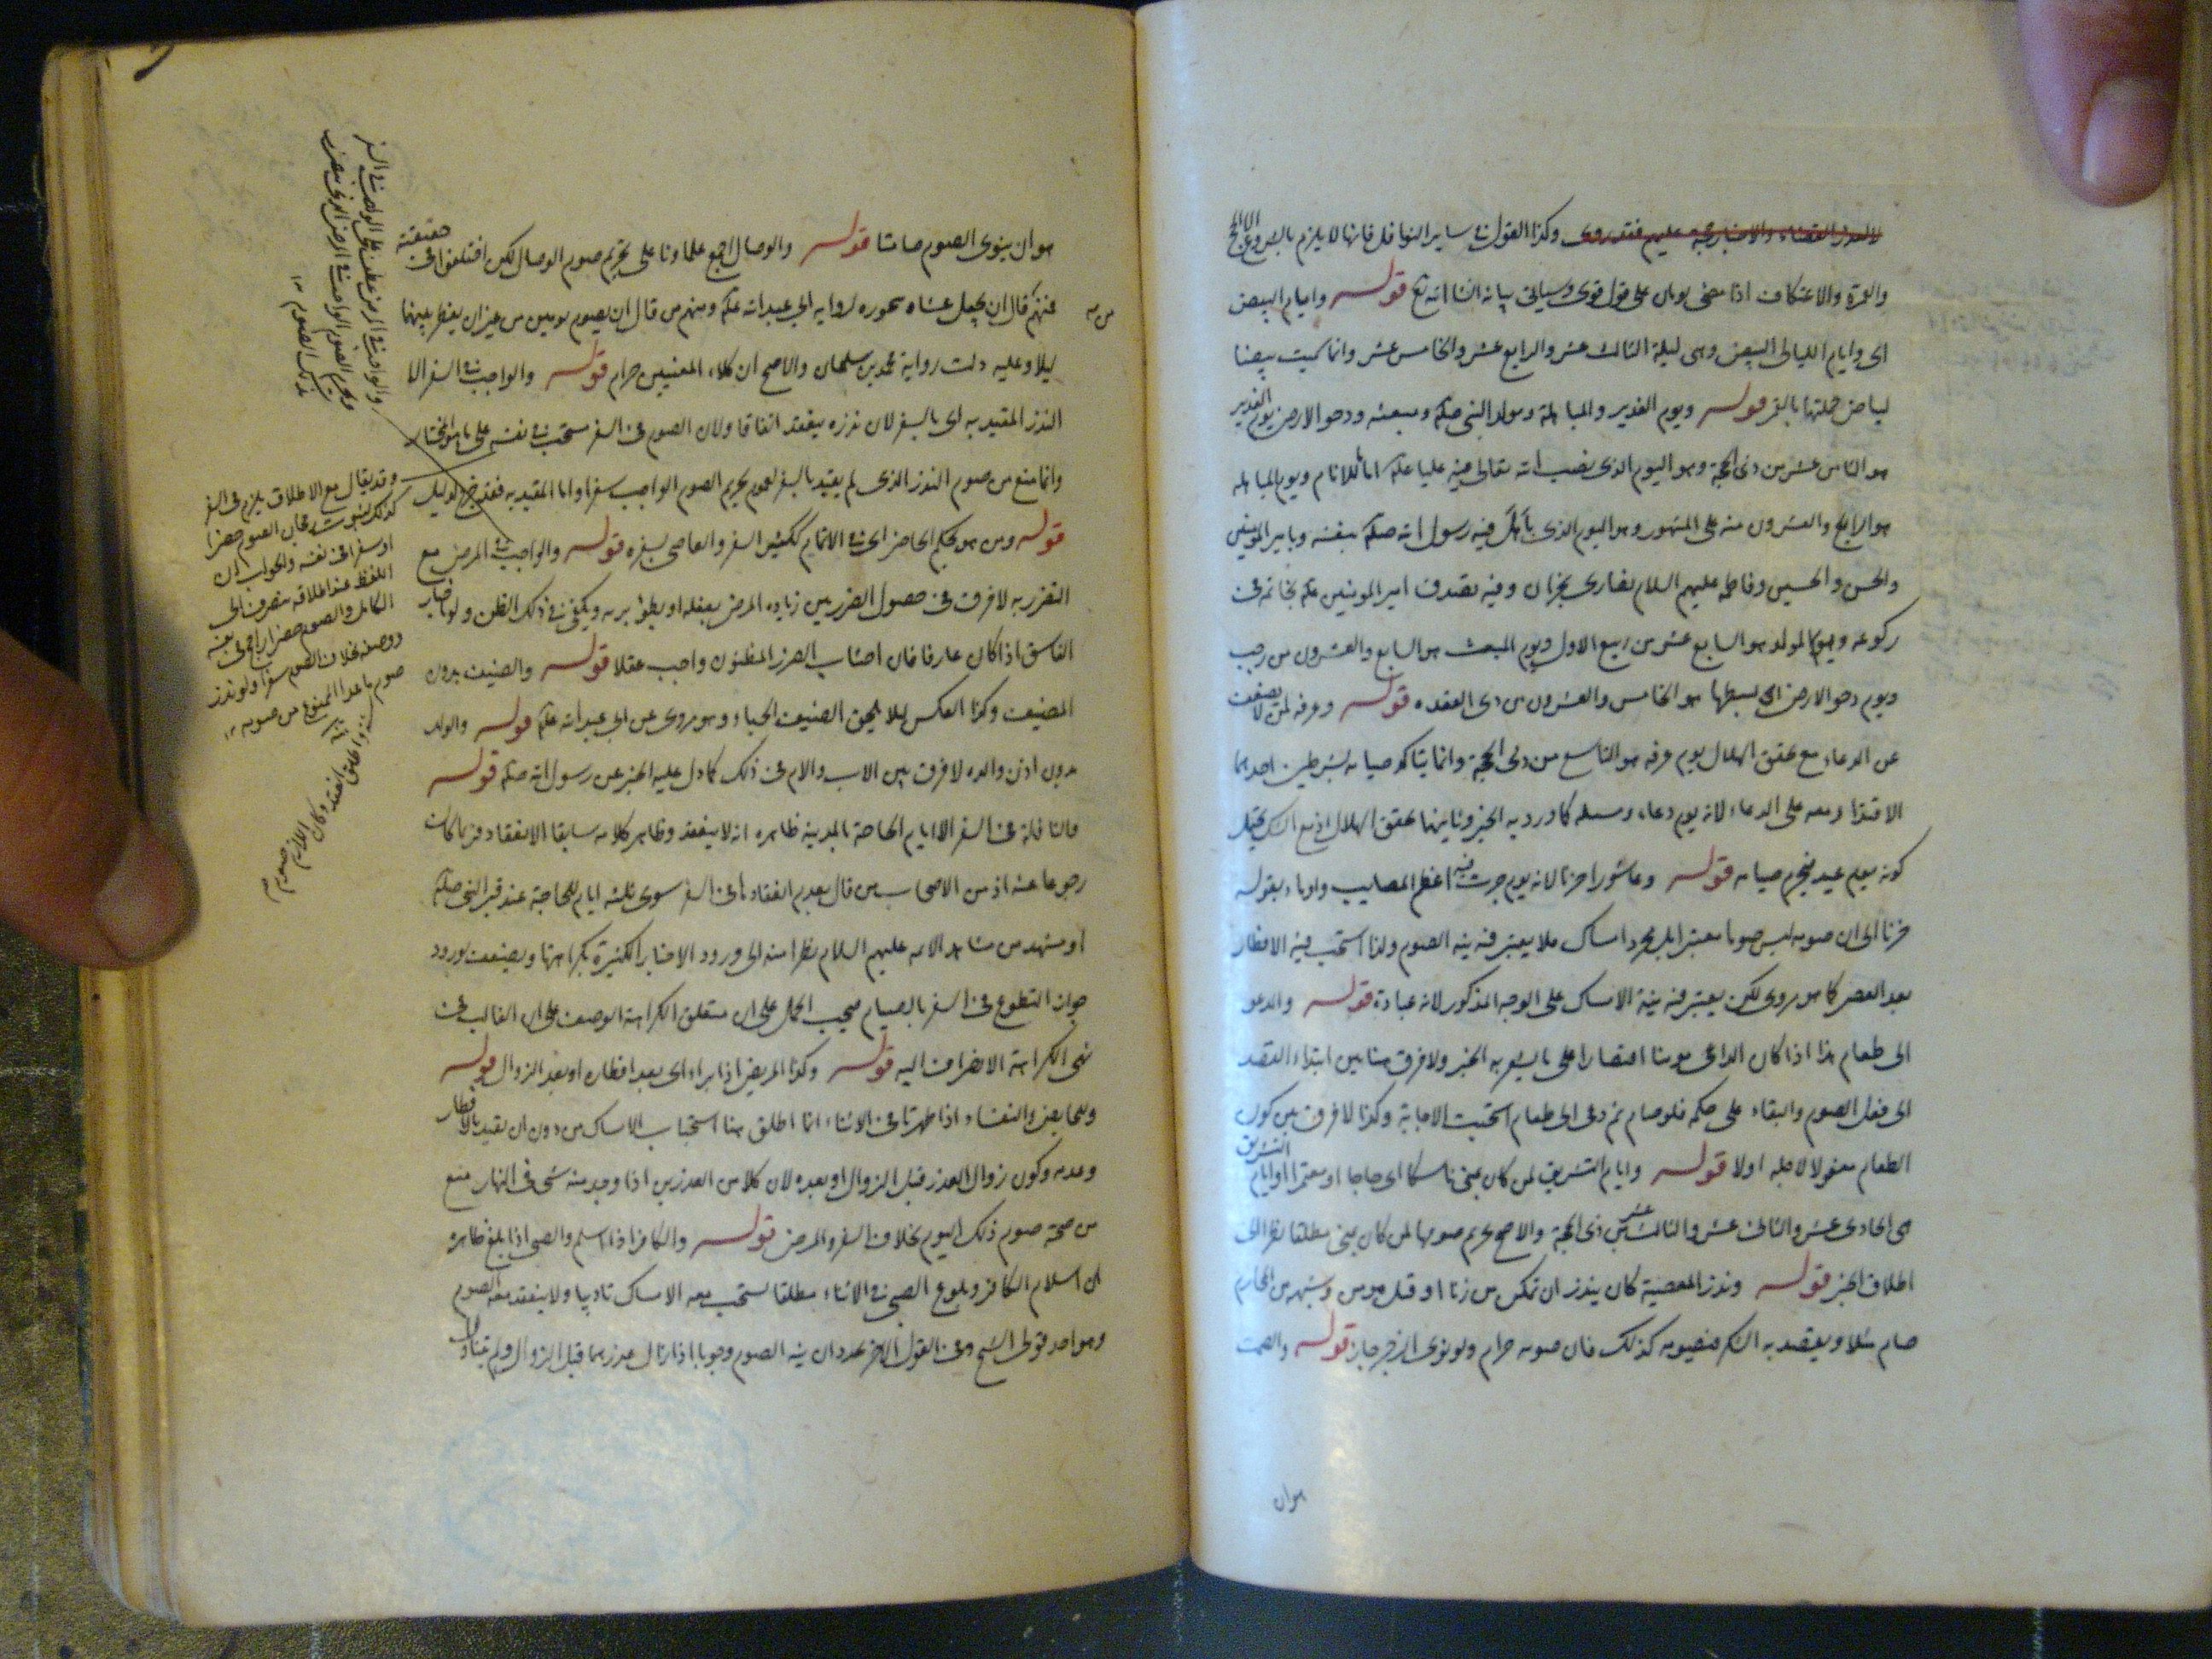 وكذا القول في ساير النوافل فانها لا يلزم بالشروع الا الحج
والعمرة والاعتكاف اذا مضى يومان على قول قوي وسياتي بيانه انشا الله تع قوله وايام البيض
اي وايام الليالي البيض وهي ليلة الثالث عشر والرابع عشر والخامس عشر وانما سميت بيضا
لبياض جملتها بالقمر قوله ويوم الغدير والمباهلة ومولد النبي صلعم ومبعثه ودحو الارض يوم الغدير
هو الثامن عشر من ذي الحجة وهو اليوم الذي نصب الله تعالى فيه عليا علم اماما للانام ويوم المباهله
هو الرابع والعشرون منه على المشهور وهو اليوم الذي باهل فيه رسول الله صلعم بنفسه وبامير المومنين
والحسن والحسين وفاطمة عليهم السلام نصارى نجران وفيه تصدق امير المومنين علم بخاتمه في
ركوعه ويوم المولد هو السابع عشر من ربيع الاول ويوم المبعث هو السابع والعشرون من رجب
ويوم دحو الارض اي بسطها هو الخامس والعشرون من ذي القعده قوله وعرفه لمن لا يضعف
عن الدعاء مع تحقق الهلال يوم عرفه هو التاسع من ذي الحجة وانما يتاكد صيامه بشرطين احدهما
الاقتدار معه على الدعاء لانه يوم دعاء ومسله كما ورد به الخبر وثانيهما تحقق الهلال اذ مع الشك يحتمل
كونه يوم عيد فيحرم صيامه قوله وعاشورا حزنا لانه يوم جرت فيه اعظم المصايب واوماء بقوله
حزنا الى ان صومه ليس صوما معتبرا بل مجرد امساك فلا يعتبر فيه نية الصوم ولذا استحب فيه الافطار
بعد العصر كما هو مروي لكن يعتبر فيه نية الامساك على الوجه المذكور لانه عبادة قوله والدعو
الى طعام هذا اذا كان الداعي مومنا اقتصارا على ما يشعر به الخبر ولا فرق هنا بين ابتداء القصد
الى فعل الصوم والبقاء على حكمه فلو صام ثم دعي الى طعام استحبت الاجابة وكذا لا فرق بين كون
الطعام معمولا لاجله اولا قوله وايام التشريق لمن كان بمنى ناسكا اي حاجا او معتمرا وايام التشريق
هي الحادي عشر والثاني عشر والثالث عشر من ذي الحجة والاصح تحريم صومها لمن كان بمنى مطلقا نظرا الى
اطلاق الخبر قوله ونذر المعصية كان ينذر ان تمكن من زنا او قتل مومن وشبهه من المحارم
صام مثلا ويقصد به الشكر فصومه كذلك فان صومه حرام ولو نوى الزجر جاز قوله والصمت
هو ان
هو ان ينوي الصوم صامتا قوله والوصال اجمع علماونا على تحريم صوم الوصال لكن اختلفوا في حقيقته
فمنهم قال ان يجعل عشاه سحوره لرواية ابي عبد الله علم ومنهم من قال ان يصوم يومين من غير ان يفطر بينهما
ليلا وعليه دلت رواية محمد بن سليمان والاصح ان كلا المعنيين حرام قوله والواجب في السفر الا
النذر المقيد به اي بالسفر لان نذره ينعقد اتفاقا ولان الصوم في السفر مستحب في نفسه على ما هو المختار
وانما منع من صوم النذر الذي لم يقيد بالسفر لعموم تحريم الصوم الواجب سفرا واما المقيد به فقد خرج لدليل
قوله ومن هو بحكم الحاضر اي في الاتمام ككثير السفر والعاصي بسفره قوله والواجب في المرض مع
التضرر به لا فرق في حصول الضرر بين زيادة المرض بفعله او بطؤ برءه ويكفي في ذلك الظن ولو باخبار
الفاسق اذا كان عارفا فان اجتناب الضرر المظنون واجب عقلا قوله والضيف بدون
المضيف وكذا العكس ليلا يلحق الضيف الحياء وهو مروي عن ابي عبد الله علم قوله والولد
بدون اذن والده لا فرق بين الاب والام في ذلك كما دل عليه الخبر عن رسول الله صلعم قوله
والنافلة في السفر الا ايام الحاجة بالمدينة ظاهره انه لا ينعقد وظاهر كلامه سابقا الانعقاد فربما كان
رجوعا عنه اذ من الاصحاب من قال بعدم انعقادها في السفر سوى ثلثه ايام للحاجة عند قبر النبي صلعم
او مشهد من مشاهد الايمه عليهم السلام نظرا منه الى ورود الاخبار الكثيرة بكراهتها ويضعف بورود
جواز التطوع في السفر بالصيام فيجب الحمل على ان متعلق الكراهة الوصف على ان الغالب في
نهي الكراهة الانصراف اليه قوله وكذا المريض اذا براء اي بعد افطاره او بعد الزوال قوله
وللحايض والنفساء اذا طهرتا في الاثناء انما اطلق هنا استحباب الامساك من دون ان يقيد بالافطار
وعدمه وكون زوال العذر قبل الزوال او بعده لان كلا من العذرين اذا وجد منه شي في النهار منع
من صحة صوم ذلك اليوم بخلاف السفر والمرض قوله والكافر اذا اسلم والصبي اذا بلغ ظاهره
ان اسلام الكافر وبلوغ الصبي في الاثناء مطلقا يستحب معه الامساك تاديبا ولا ينعقد معه الصوم
وهو احد قولي الشيخ وفي القول الاخر يجددان نية الصوم وجوبا اذا زال عذرهما قبل الزوال ولم يتناولا
والواجب في المرض عطف على الواجب في السفر
ويحرم الصوم الواجب في المرض الذي يضر
بذلك الصوم ١٢
وقد يقال مع الاطلاق يلزم في السفر
كذلك لثبوت رجحان الصوم حضرا
او سفرا في نفسه والجواب ان
اللفظ عند اطلاقه ينصرف الى
الكامل والصوم حضرا راجح في نفسه
ووصفه بخلاف الصوم سفرا ولو نذر
صوم ما عدا الممنوع من صومه ١٢